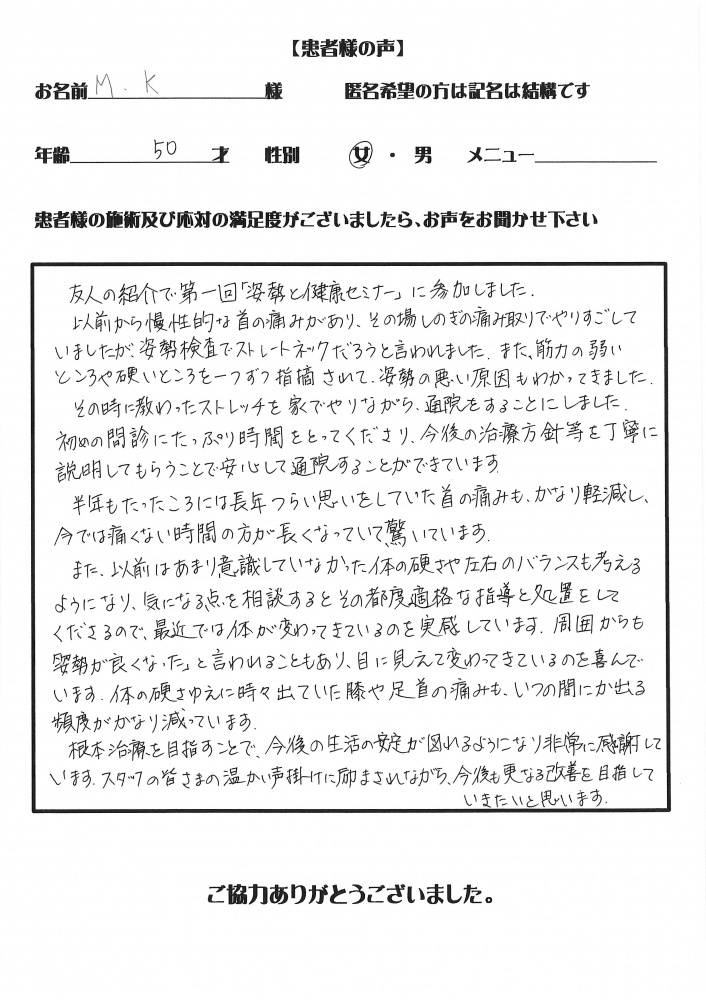 【患者様の声】
お名前 M.K 様 匿名希望の方は記名は結構です
年齢 50 才 性別 女・男 メニュー
患者様の施術及び応対の満足度がございましたら、お声をお聞かせ下さい
友人の紹介で第一回「姿勢と健康セミナー」に参加しました.
以前から慢性的な首の痛みがあり、その場しのぎの痛み取りでやりすごして
いましたが、姿勢検査でストレートネックだろうと言われました. また、筋力の弱い
ところや硬いところを一つずつ指摘されて、姿勢の悪い原因もわかってきました.
その時に教わったストレッチを家でやりながら、通院をすることにしました.
初めの問診にたっぷり時間をとってくださり、今後の治療方針等を丁寧に
説明してもらうことで安心して通院することができています.
半年もたったころには長年つらい思いをしていた首の痛みも、かなり軽減し、
今では痛くない時間の方が長くなっていて驚いています.
また、以前はあまり意識していなかった体の硬さや左右のバランスも考える
ようになり、気になる点を相談するとその都度適格な指導と処置をして
くださるので、最近では体が変わってきているのを実感しています. 周囲からも
「姿勢が良くなった」と言われることもあり、目に見えて変わってきているのを喜んで
います. 体の硬さゆえに時々出ていた膝や足首の痛みも、いつの間にか出る
頻度がかなり減っています.
根本治療を目指すことで、今後の生活の安定が図れるようになり非常に感謝して
います. スタッフの皆さまの温かい声掛けに励まされながら、今後も更なる改善を目指して
いきたいと思います.
ご協力ありがとうございました。